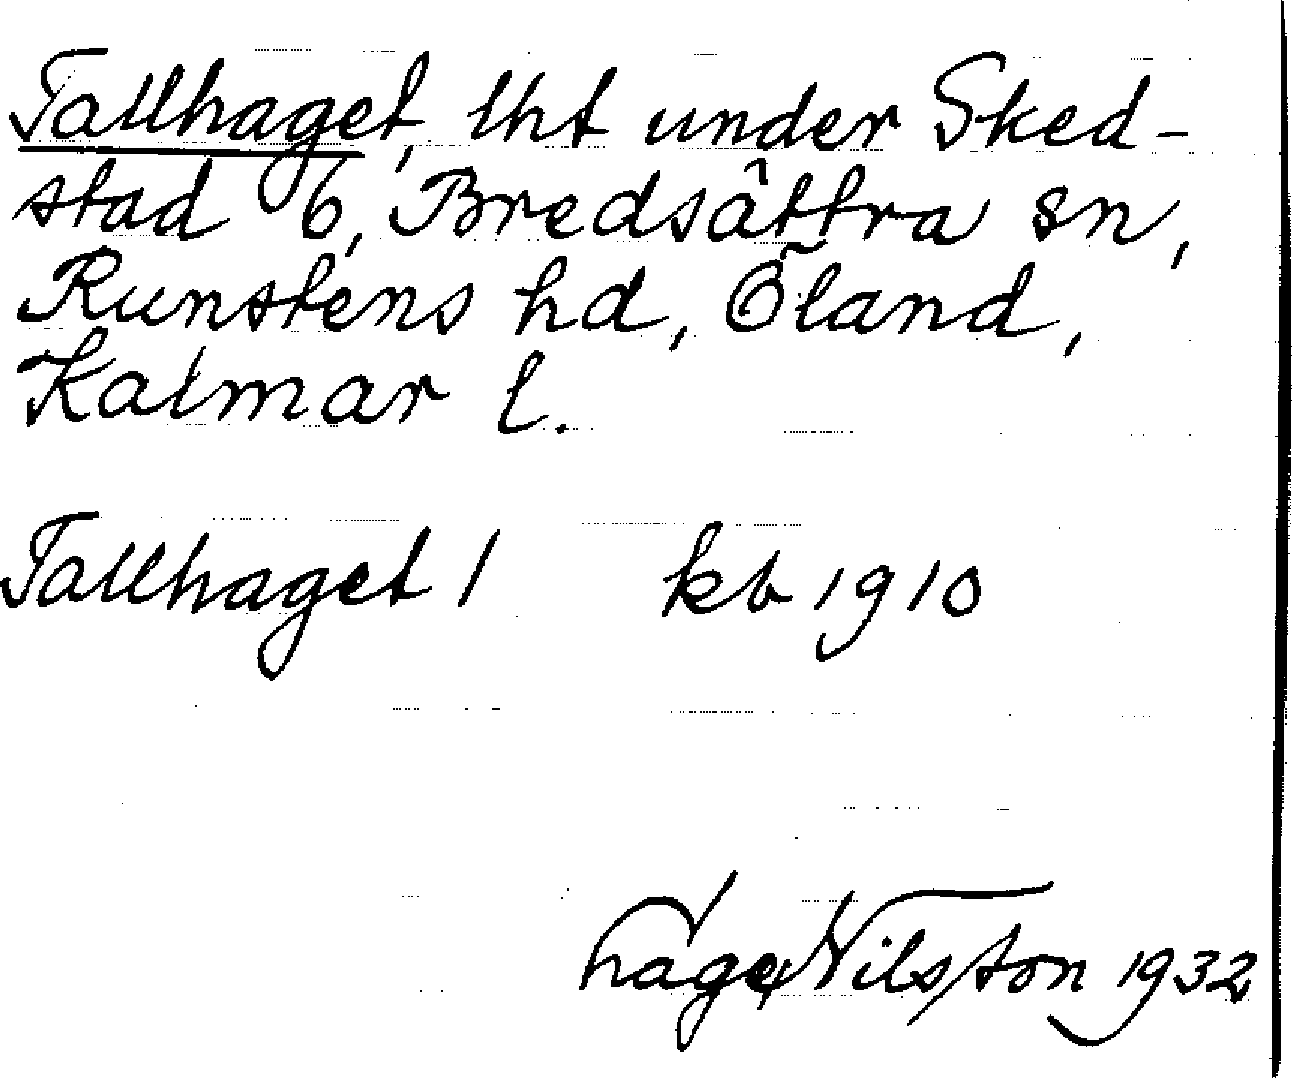 Tallhaget, lht under Sked-
stad 6, Bredsättra sn,
Runstens hd, Öland,
Kalmar l.
Tallhaget 1 kb 1910
Nilsson 1932